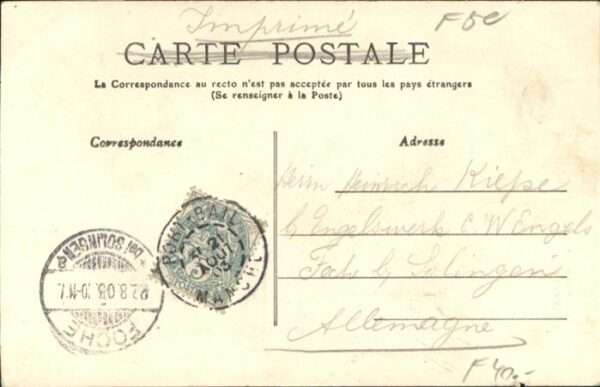 Imprimé
F 5e
CARTE POSTALE
La Correspondance au recto n'est pas acceptée par tous les pays étrangers
(Se renseigner à la Poste)
Correspondance
Adresse
Herrn Heinrich Kiepe
b/ Engelswerk C. W. Engels
Foche b/ Solingen
Allemagne
PORT-BAIL
21
AOUT
MANCHE
FOCHE
22.8.08. 10-11V.
bei SOLINGEN
F 40.-